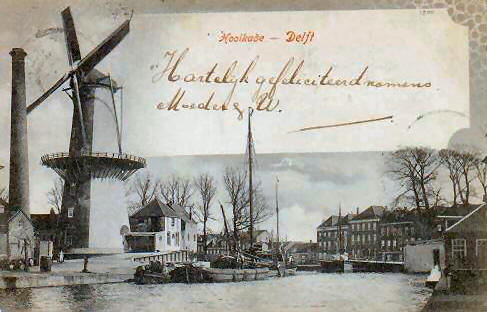 Hooikade – Delft
"Hartelijk gefeliciteerd namens
Moeder & W.